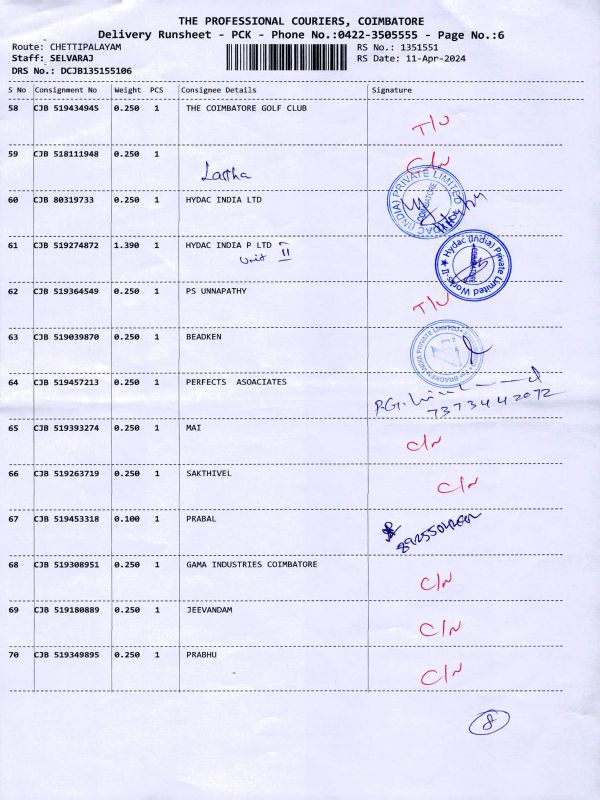 THE PROFESSIONAL COURIERS, COIMBATORE
Delivery Runsheet - PCK - Phone No.:0422-3505555 - Page No.:6
Route: CHETTIPALAYAM RS No.: 1351551
Staff: SELVARAJ RS Date: 11-Apr-2024
DRS No.: DCJB135155106
S No Consignment No Weight PCS Consignee Details Signature
58 CJB 519434945 0.250 1 THE COIMBATORE GOLF CLUB T/U
59 CJB 518111948 0.250 1 Latha C/N
60 CJB 80319733 0.250 1 HYDAC INDIA LTD
HYDAC (INDIA) PRIVATE LIMITED COIMBATORE
61 CJB 519274872 1.390 1 HYDAC INDIA P LTD
Unit II
Hydac (India) Private Limited Works-II
62 CJB 519364549 0.250 1 PS UNNAPATHY T/U
63 CJB 519039870 0.250 1 BEADKEN
64 CJB 519457213 0.250 1 PERFECTS ASOACIATES
7373442072
65 CJB 519393274 0.250 1 MAI C/N
66 CJB 519263719 0.250 1 SAKTHIVEL C/N
67 CJB 519453318 0.100 1 PRABAL
68 CJB 519308951 0.250 1 GAMA INDUSTRIES COIMBATORE C/N
69 CJB 519180889 0.250 1 JEEVANDAM C/N
70 CJB 519349895 0.250 1 PRABHU C/N
8